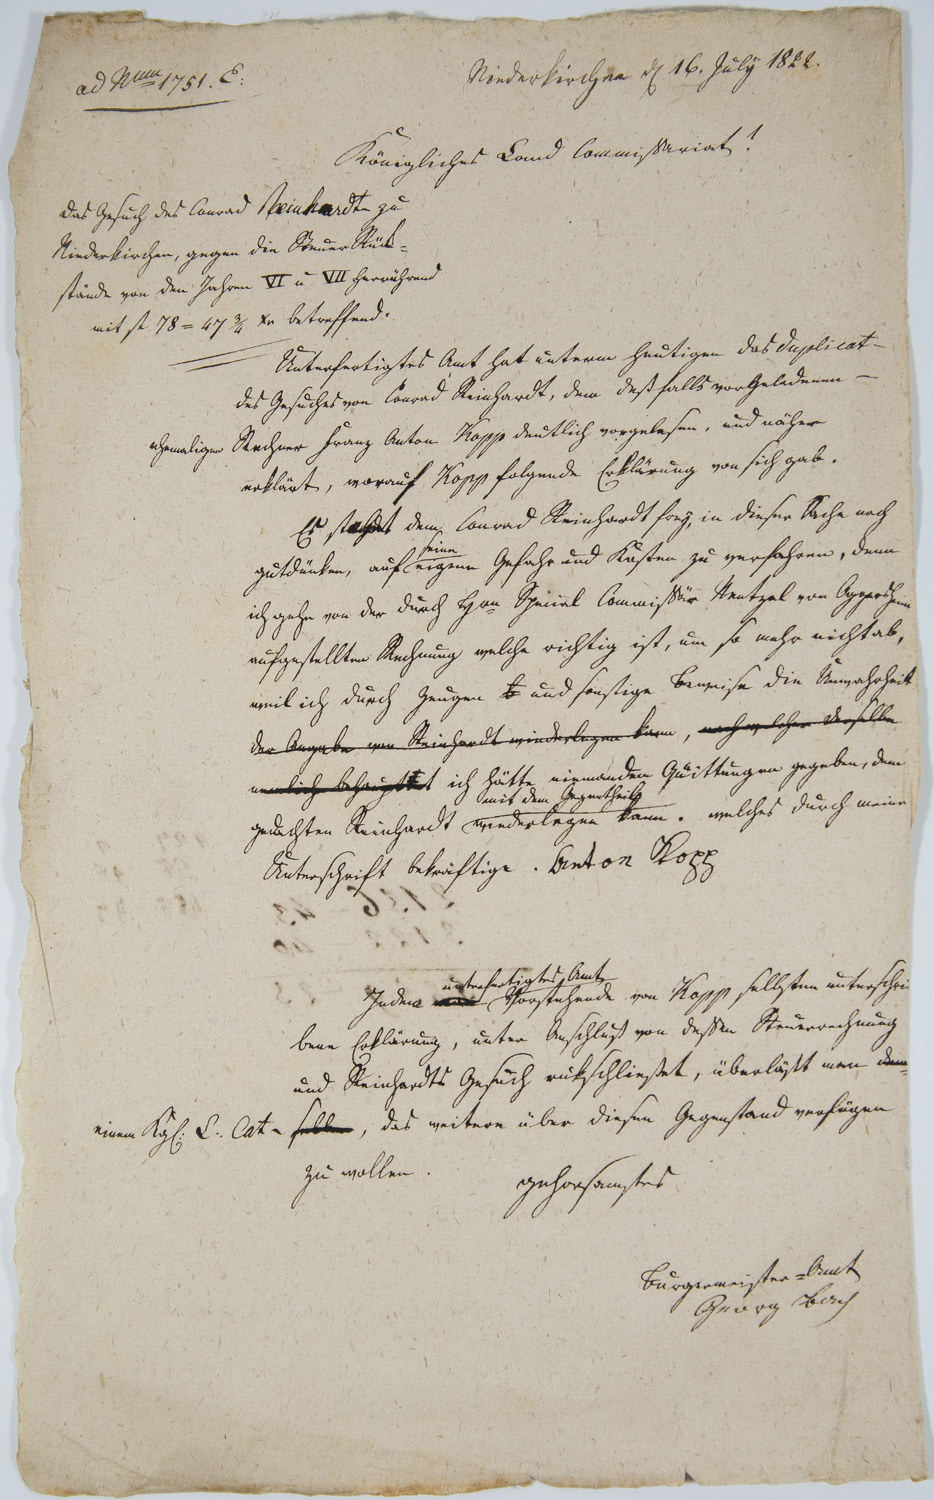 ad Num 1751. E:
Niederkirchen d 16. July 1822.
Königliches Land Commissariat!
Das Gesuch des Conrad Reinhardt zu
Niederkirchen, gegen die Steuer Rück-
stände von den Jahren VI u VII herrührend
mit fl 78 = 47 3/4 xr betreffend.
Unterfertigtes Amt hat unterm Heutigen das Duplicat
des Gesuches von Conrad Reinhardt, dem deßfalls vorgeladenen
ehemaligen Rechner Franz Anton Kopp deutlich vorgelesen, und näher
erklärt, worauf Kopp folgende Erklärung von sich gab.
Es steht dem Conrad Reinhardt frey, in dieser Sache nach
gutdünken, auf seine eigene Gefahr und Kosten zu verfahren, denn
ich gehe von der durch Hrn Special Commissär Mentzel von Oggersheim
aufgestellten Rechnung welche richtig ist, um so mehr nicht ab,
weil ich durch Zeugen und sonstige Beweise die Unwahrheit
der Angabe von Reinhardt wiederlegen kann, nach welcher derselbe
nemlich behauptet ich hätte niemanden Quittungen gegeben, dem
gedachten Reinhardt mit dem Gegentheil wiederlegen kann. welches durch meine
Unterschrift bekräftige. Anton Kopp
Indem unterfertigtes Amt Vorstehende von Kopp selbsten unterschrie
bene Erklärung, unter Anschluß von dessen Steuerrechnung
und Reinhardts Gesuch rükschließet, überläßt man dem-
einem Kgl: L: Cat- selben, das weitere über diesen Gegenstand verfügen
zu wollen.
gehorsamstes
Burgermeister-Amt
Georg Bach